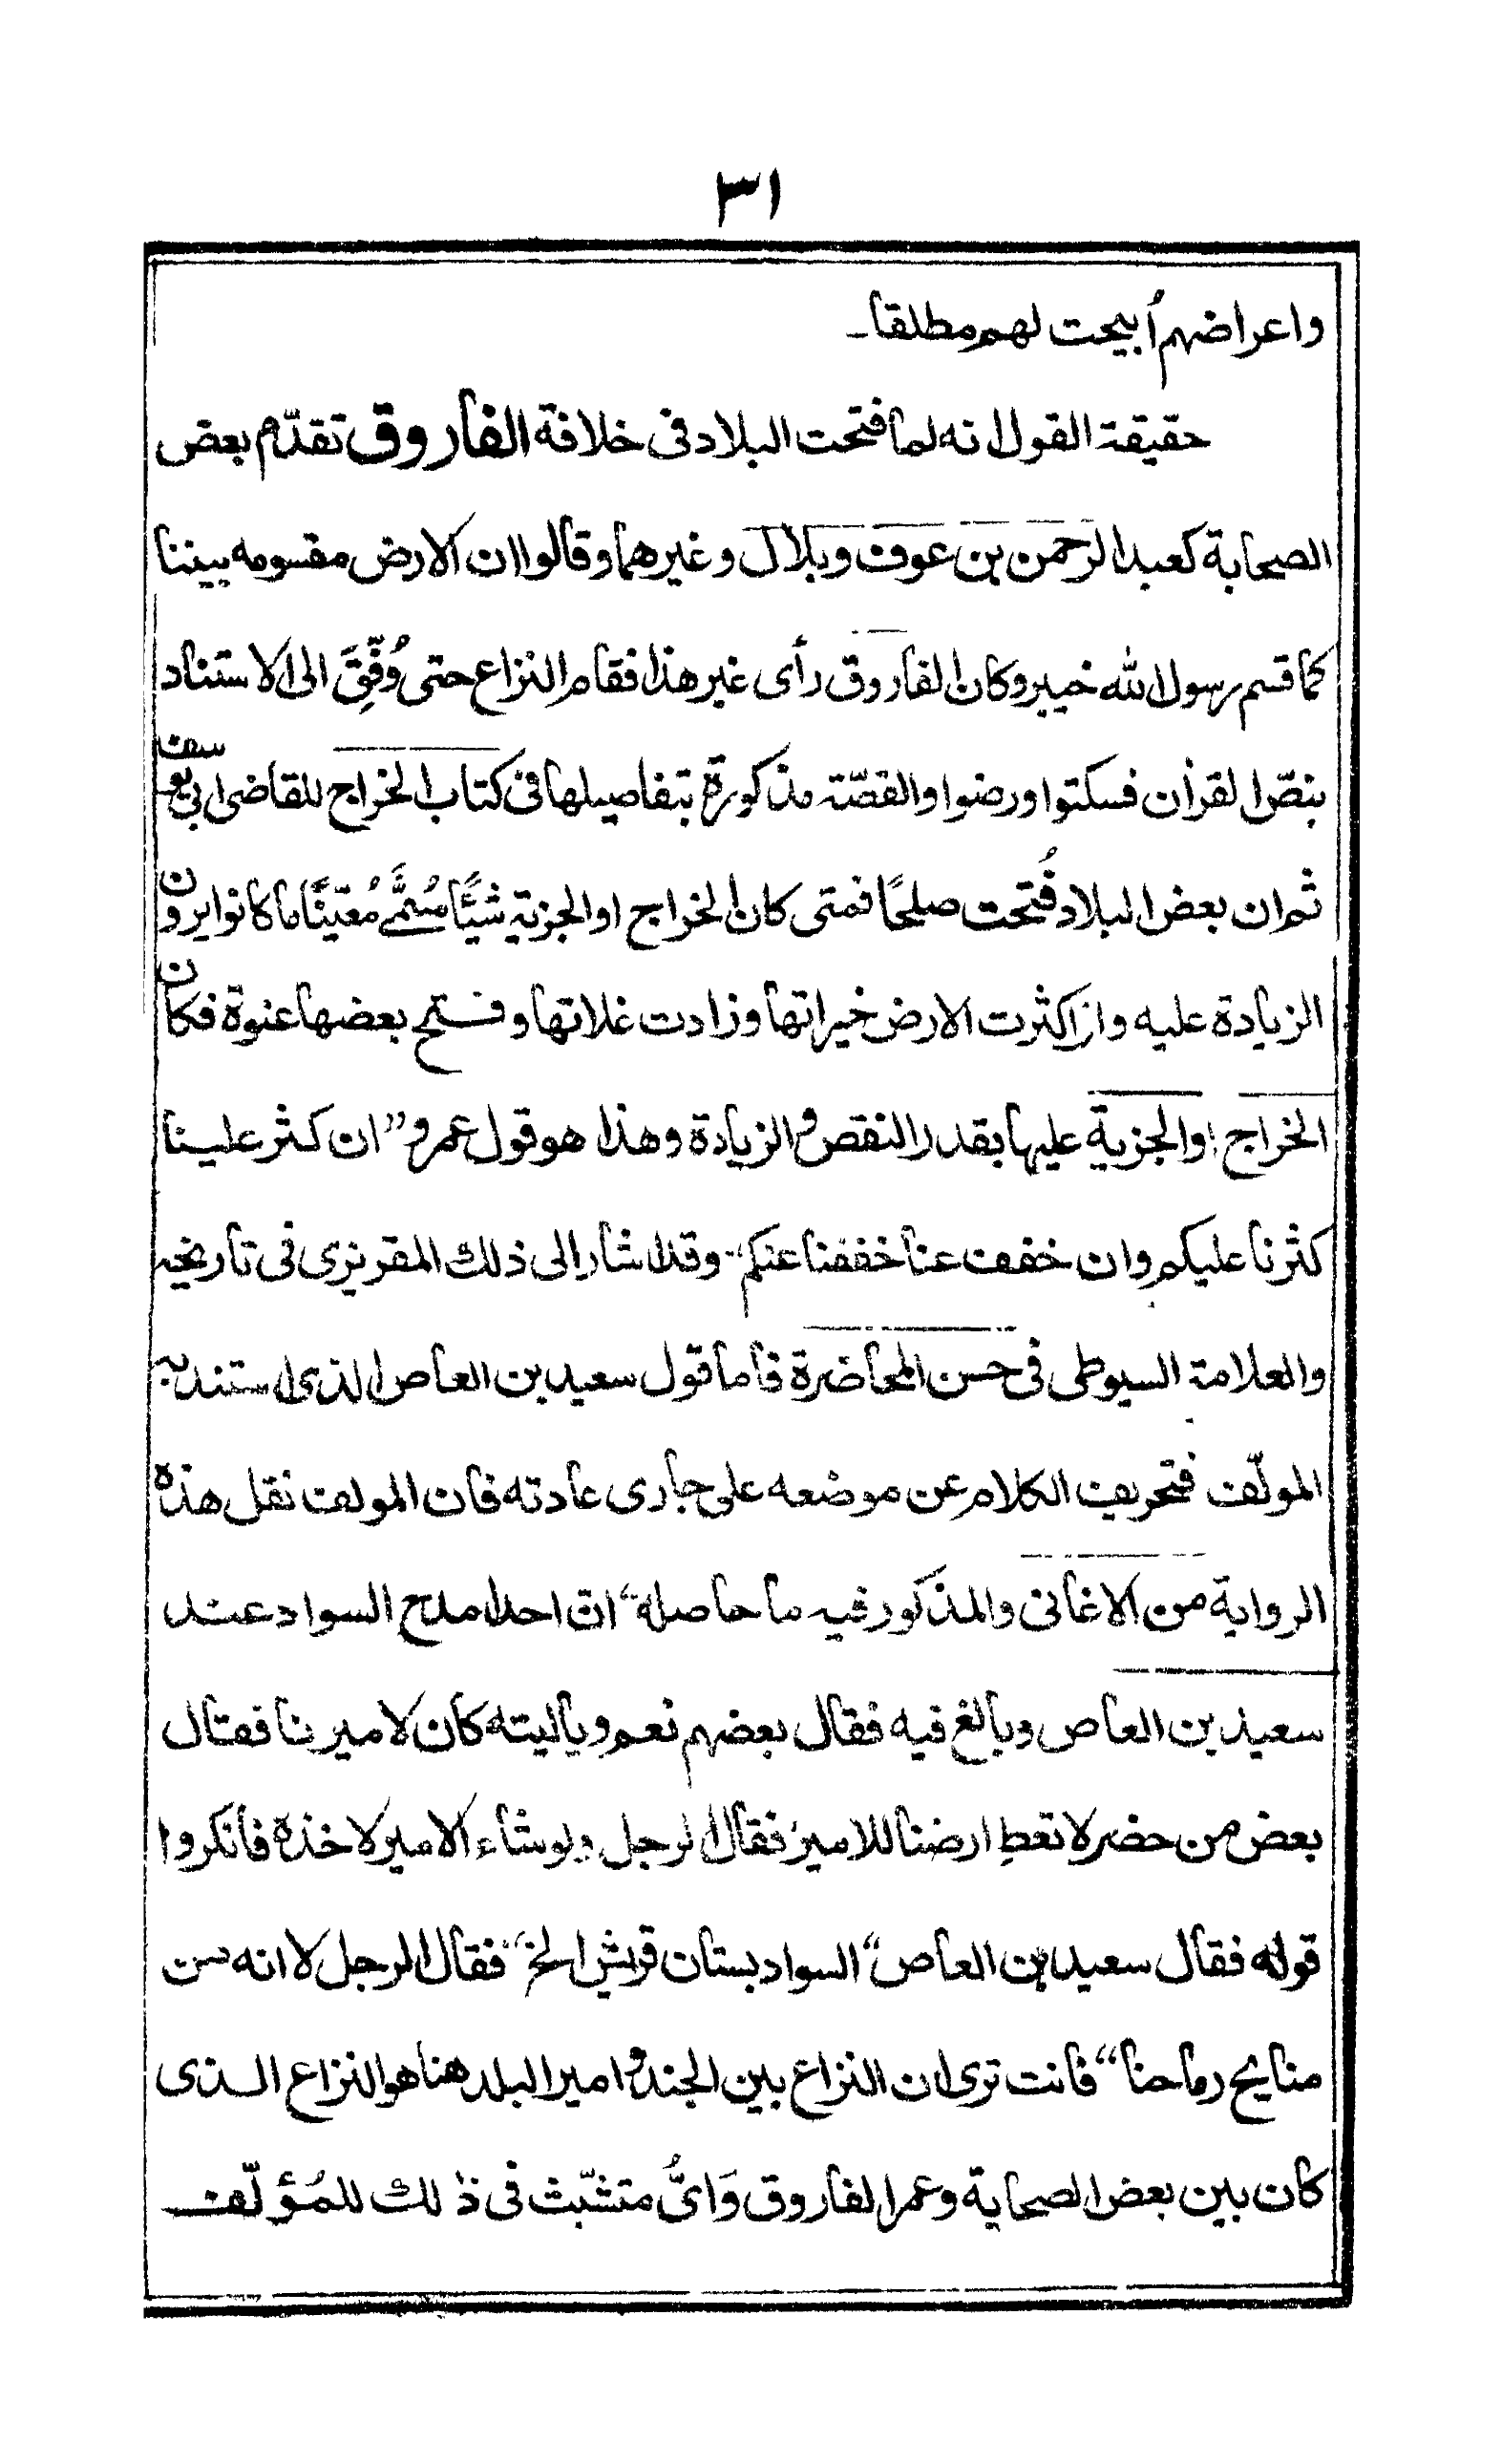 ٣١
واعراضهم أُبيحت لهم مطلقا۔
حقيقة القول انه لما فتحت البلاد فى خلافة الفاروق تقدّم بعض
الصحابة كعبد الرحمن بن عوف وبلال وغيرهما وقالوا ان الارض مقسومه بيننا
كما قسم رسول الله خيبر وكان الفاروق رأى غير هذا فقام النزاع حتى وُفِّقَ الى الاستناد
بنصّ القرأن فسكتوا ورضوا والقصّة مذكورة بتفاصيلها فى كتاب الخراج للقاضى ابى يوسف
ثم ان بعض البلاد فُتحت صلحًا فمتى كان الخراج او الجزية شيئًا مُسَمًّى مُعيّنًا ما كانوا يرون
الزيادة عليه واذا كثرت الارض خيراتها وزادت غلاتها وفتح بعضها عنوة فكان
الخراج او الجزية عليها بقدر النقص والزيادة وهذا هو قول عمرو ”ان كثر علينا
كثرنا عليكم وان خفف عنا خففنا عنكم“۔ وقد اشار الى ذلك المقريزى فى تاريخه
والعلامة السيوطى فى حسن المحاضرة فاما قول سعيد بن العاص الذى استند به
المولّف فتحريف الكلام عن موضعه على جارى عادته فان المولف نقل هذه
الرواية من الاغانى والمذكور فيه ما حاصله ”ان احدا مدح السواد عند
سعيد بن العاص وبالغ فيه فقال بعضهم نعم وياليته كان لاميرنا فقال
بعض من حضر لا تعطِ ارضنا للامير فقال الرجل ولو شاء الامير لاخذه فانكروا
قوله فقال سعيد بن العاص ”السواد بستان قريش الخ“ فقال الرجل لا انه من
منايح رماحنا“ فانت ترى ان النزاع بين الجند وامير البلد هنا هو النزاع الذى
كان بين بعض الصحابة وعمر الفاروق وَاىُّ متشبّث فى ذلك للمُؤلّف